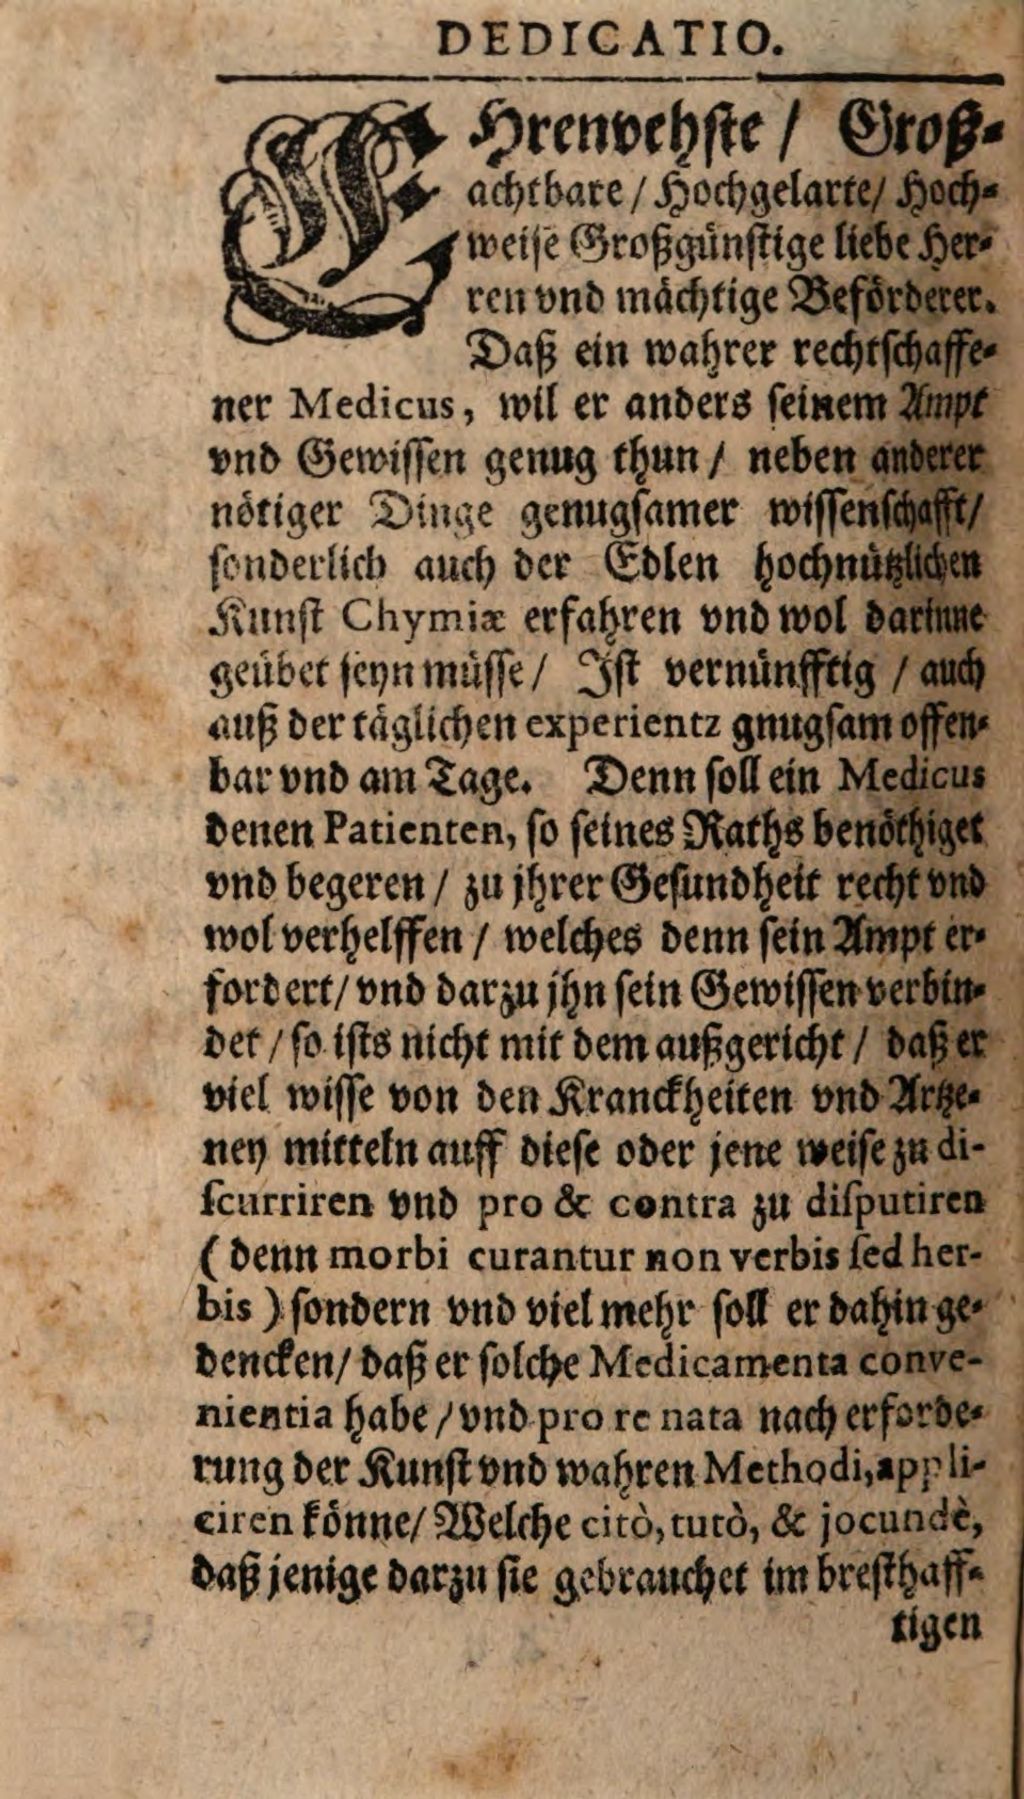 DEDICATIO.
EHrenvehste / Groß-
achtbare / Hochgelarte / Hoch-
weise Großgünstige liebe Her-
ren vnd mächtige Beförderer.
Daß ein wahrer rechtschaffe-
ner Medicus, wil er anders seinem Ampt
vnd Gewissen genug thun / neben anderer
nötiger Dinge genugsamer wissenschafft /
sonderlich auch der Edlen hochnützlichen
Kunst Chymiæ erfahren vnd wol darinne
geübet seyn müsse / Jst vernünfftig / auch
auß der täglichen experientz gnugsam offen-
bar vnd am Tage. Denn soll ein Medicus
denen Patienten, so seines Raths benöthiget
vnd begeren / zu jhrer Gesundheit recht vnd
wol verhelffen / welches denn sein Ampt er-
fordert / vnd darzu jhn sein Gewissen verbin-
det / so ists nicht mit dem außgericht / daß er
viel wisse von den Kranckheiten vnd Artze-
ney mitteln auff diese oder jene weise zu di-
ſcurriren vnd pro & contra zu diſputiren
( denn morbi curantur non verbis ſed her-
bis ) sondern vnd viel mehr soll er dahin ge-
dencken / daß er solche Medicamenta conve-
nientia habe / vnd pro re nata nach erforde-
rung der Kunst vnd wahren Methodi, appli-
ciren könne / Welche citò, tutò, & jocundè,
daß jenige darzu sie gebrauchet im bresthaff-
tigen